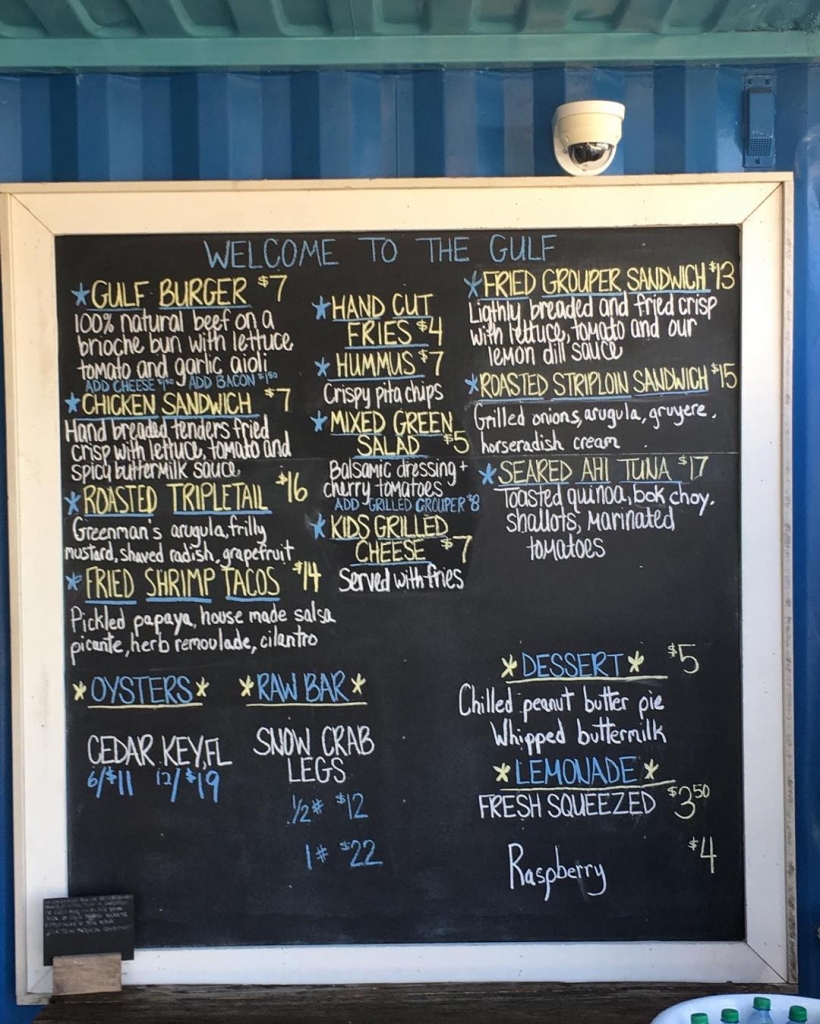 WELCOME TO THE GULF
*GULF BURGER $7
100% natural beef on a
brioche bun with lettuce
tomato and garlic aioli
ADD CHEESE $1.50 ADD BACON $1.50
*CHICKEN SANDWICH $7
Hand breaded tenders fried
crisp with lettuce, tomato and
spicy buttermilk sauce
*ROASTED TRIPLETAIL $16
Greenman's arugula, frilly
mustard, shaved radish, grapefruit
*FRIED SHRIMP TACOS $14
Pickled papaya, house made salsa
picante, herb remoulade, cilantro
*HAND CUT
FRIES $4
*HUMMUS $7
Crispy pita chips
*MIXED GREEN
SALAD $5
Balsamic dressing +
cherry tomatoes
ADD GRILLED GROUPER $8
*KIDS GRILLED
CHEESE $7
Served with fries
*FRIED GROUPER SANDWICH $13
Ligthly breaded and fried crisp
with lettuce, tomato and our
lemon dill sauce
*ROASTED STRIPLOIN SANDWICH $15
Grilled onions, arugula, gruyere,
horseradish cream
*SEARED AHI TUNA $17
Toasted quinoa, bok choy,
shallots, marinated
tomatoes
*OYSTERS*
CEDAR KEY, FL
6/$11 12/$19
*RAW BAR*
SNOW CRAB
LEGS
1/2# $12
1# $22
*DESSERT* $5
Chilled peanut butter pie
Whipped buttermilk
*LEMONADE*
FRESH SQUEEZED $3.50
Raspberry $4